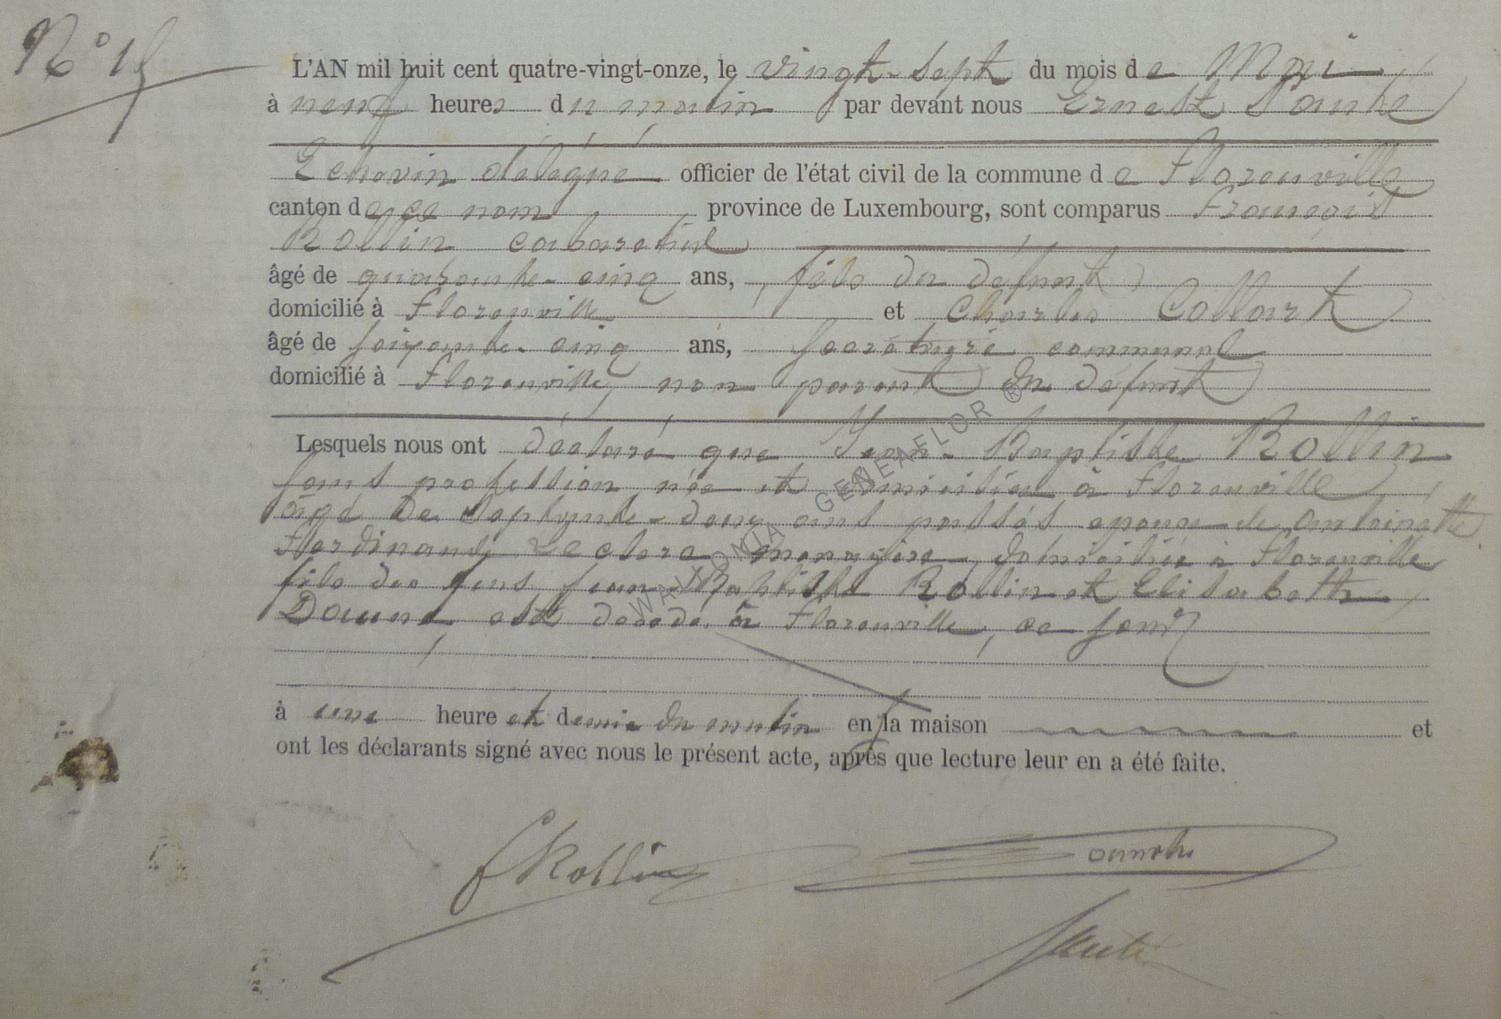 N° 15
L'AN mil huit cent quatre-vingt-onze, le vingt-sept du mois de Mai
à neuf heures du matin par devant nous Ernest
Echevin délégué officier de l'état civil de la commune de Florenville
canton de ce nom province de Luxembourg, sont comparus François
Rollin cabaretier
âgé de quarante-cinq ans, fils du défunt
domicilié à Florenville et Charles Collart
âgé de soixante-cinq ans, Secrétaire communal
domicilié à Florenville, non parent du défunt
Lesquels nous ont déclaré que Jean-Baptiste Rollin
sans profession, née et domicilié à Florenville
âgé de septante-douze ans passés epoux de Antoinette
Ferdinande Leclere menagère domiciliée à Florenville
fils des feus Jean-Baptiste Rollin et Elisabeth
est decede à Florenville, ce jour
à une heure et demie du matin en la maison et
ont les déclarants signé avec nous le présent acte, après que lecture leur en a été faite.
WALLONIA GENEAFLOR ®
F Rollin